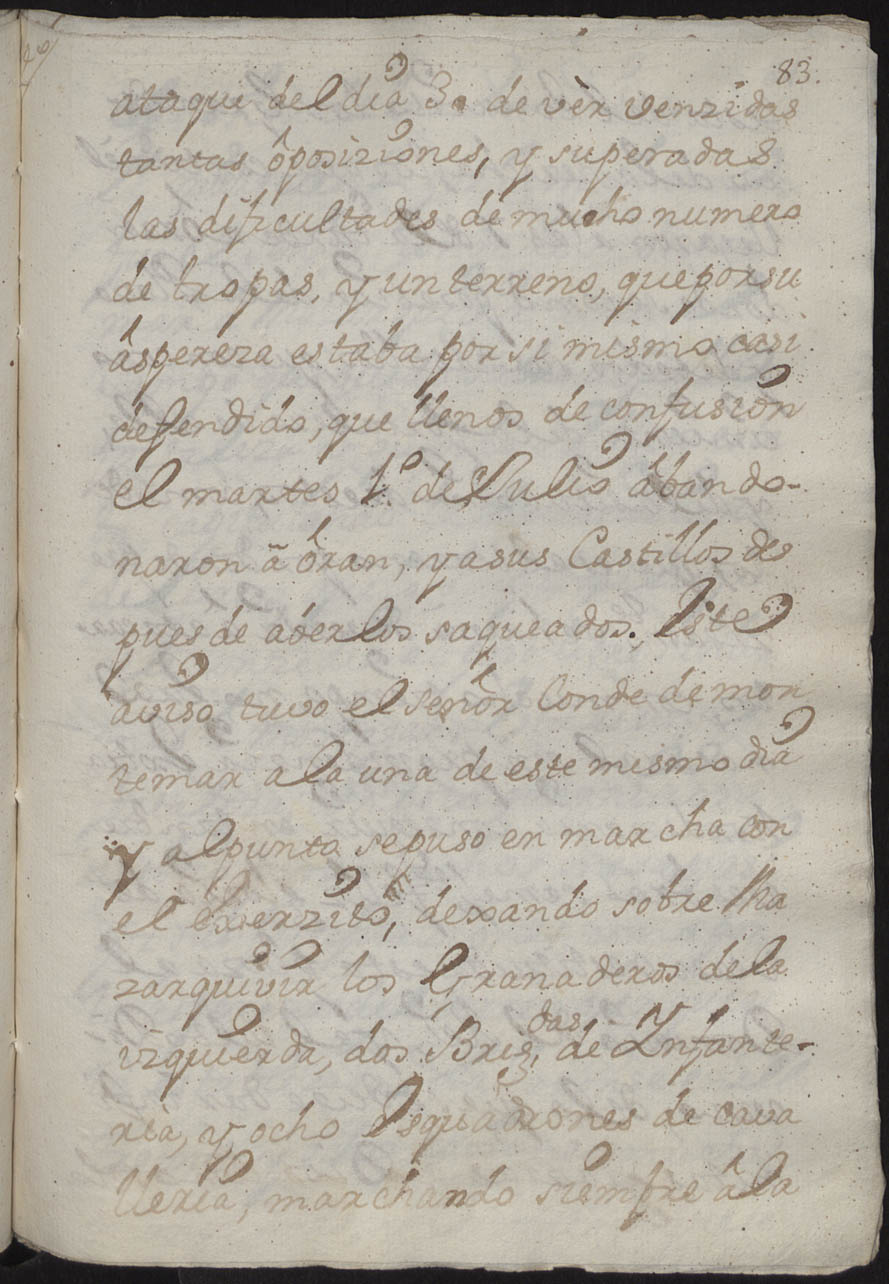 83.
ataque del dia 3. de vèr venzidas
tantas ôposiziones, y superadas
las dificultades de mucho numero
de tropas, y un terreno, que por su
âspereza estaba por si mismo casi
defendido, que llenos de confusion
el martes 1.º de Julio âbando-
naron ã ôran, y a sus Castillos des
pues de aber los saqueados. Este
aviso tuvo el señôr Conde de mon
temar a la una de este mismo dia
Y al punto se puso en marcha con
el Exerzito, dexando sobre Ma
zarquivir los Granaderos de la
izquierda, dos Brig.das de Infante-
ria, y ocho Esquadrones de cava
lleria, marchando siempre â la